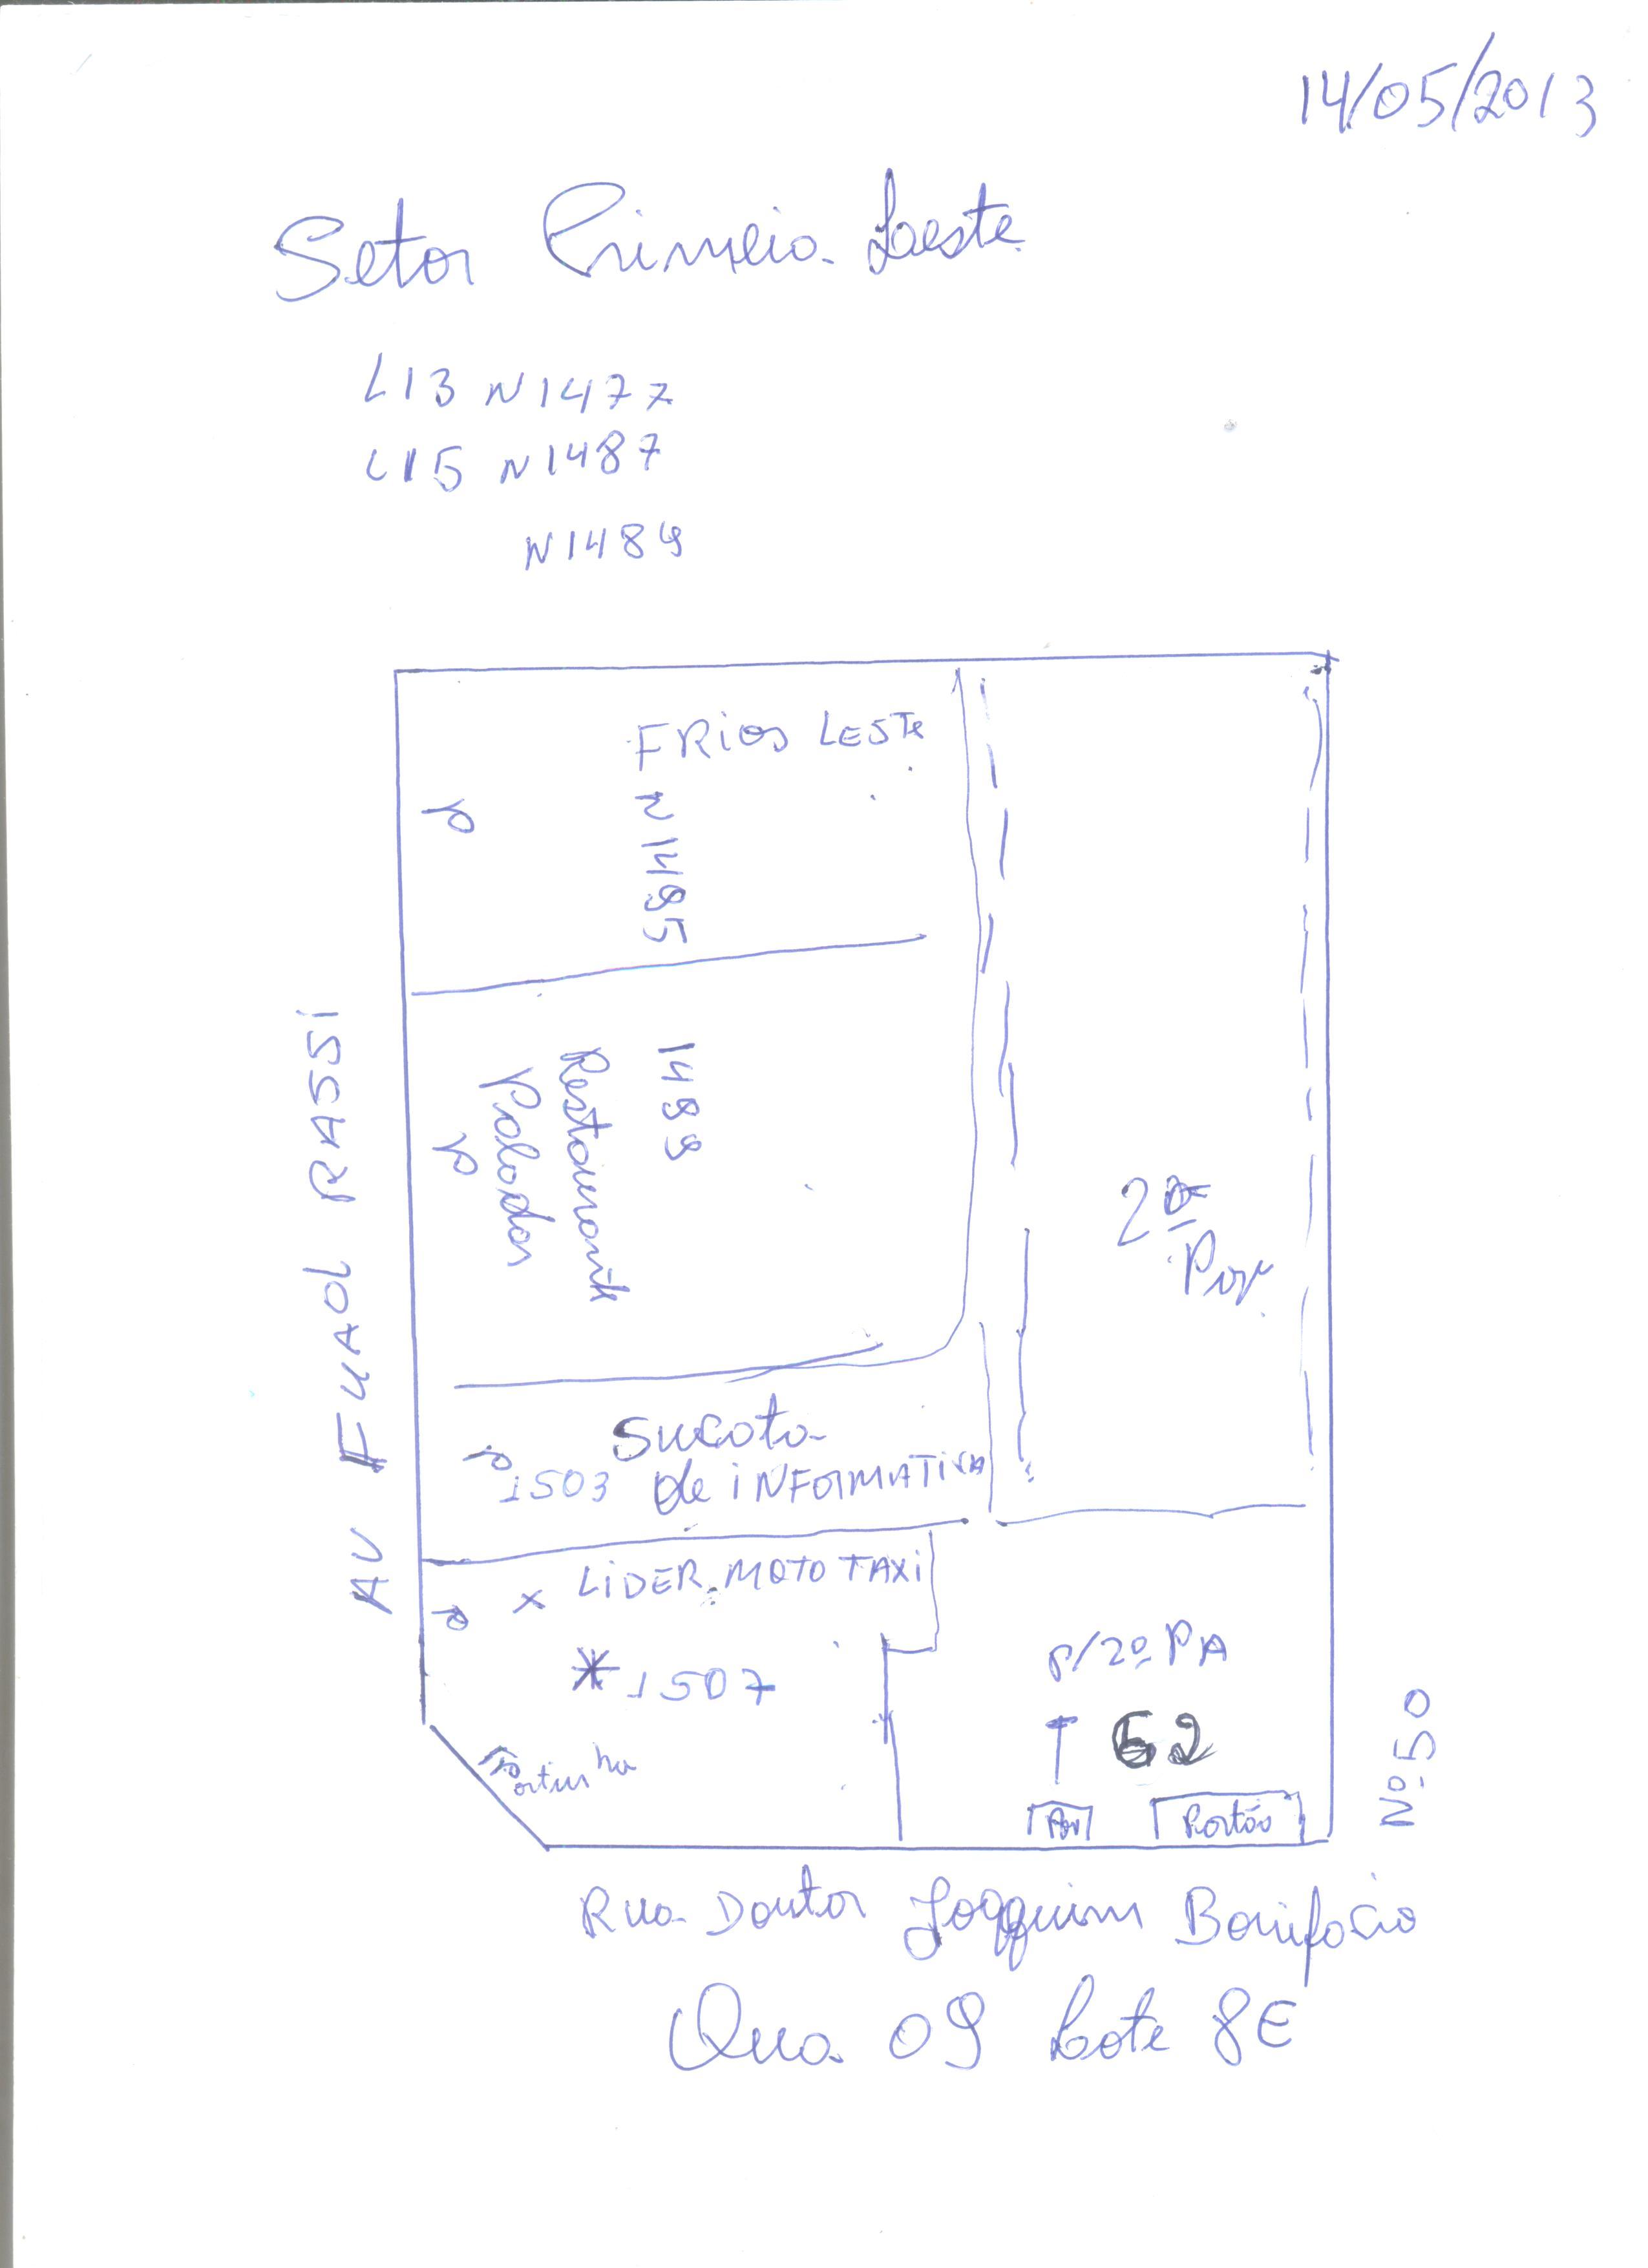 14/05/2013
Setor Criméia Leste
L13 N1477
L15 N1487
N1489
FRIOS LESTE
N 1495
1499
Restaurante
AV FUAD RASSI
2º
Pav
Sucata
1503 de INFORMATICA
X LIDER MOTO TAXI
* 1507
Portinha
P/2º PA
62
Portão
Nº 50
Rua Doutor Joaquim Bonifacio
Qua 09 Lote 8E